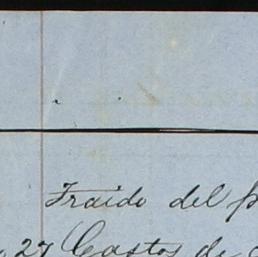 Fraido del
27 Gastos de